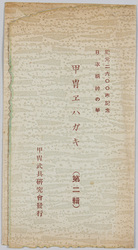 紀元二六〇〇年記念
日本精神の華
甲冑ヱハガキ
(第二輯)
甲冑武具研究會發行